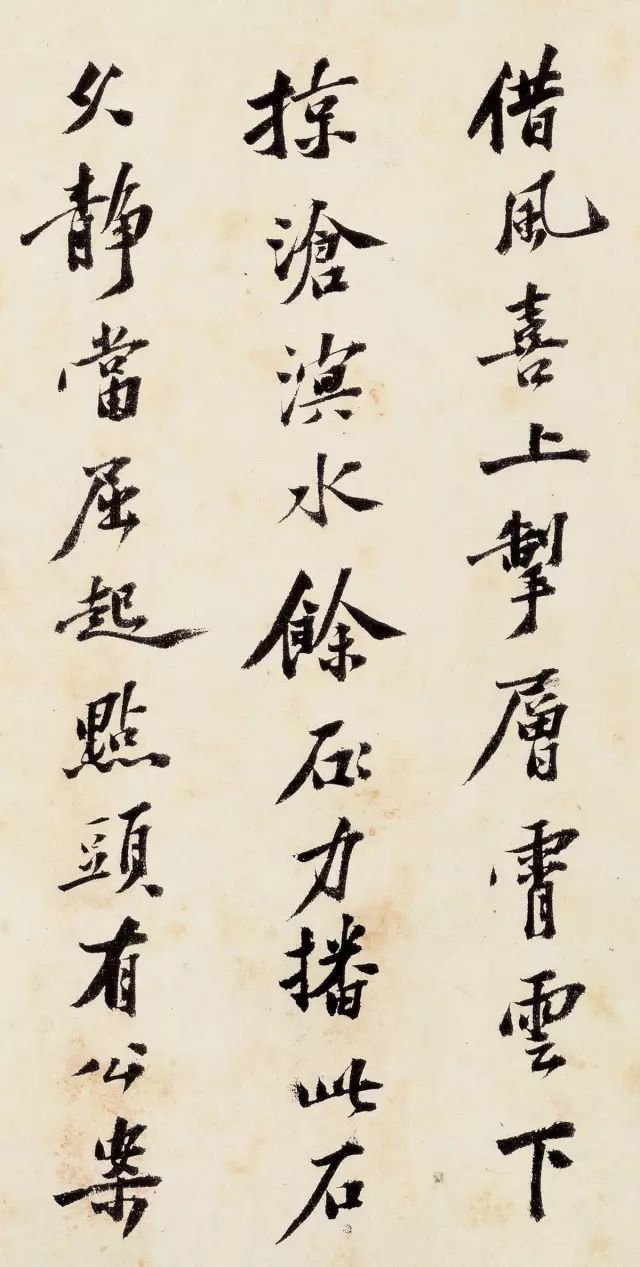 借風喜上掣層霄雲下
掠滄溟水餘石力播此石
久静當屈起點頭有公案